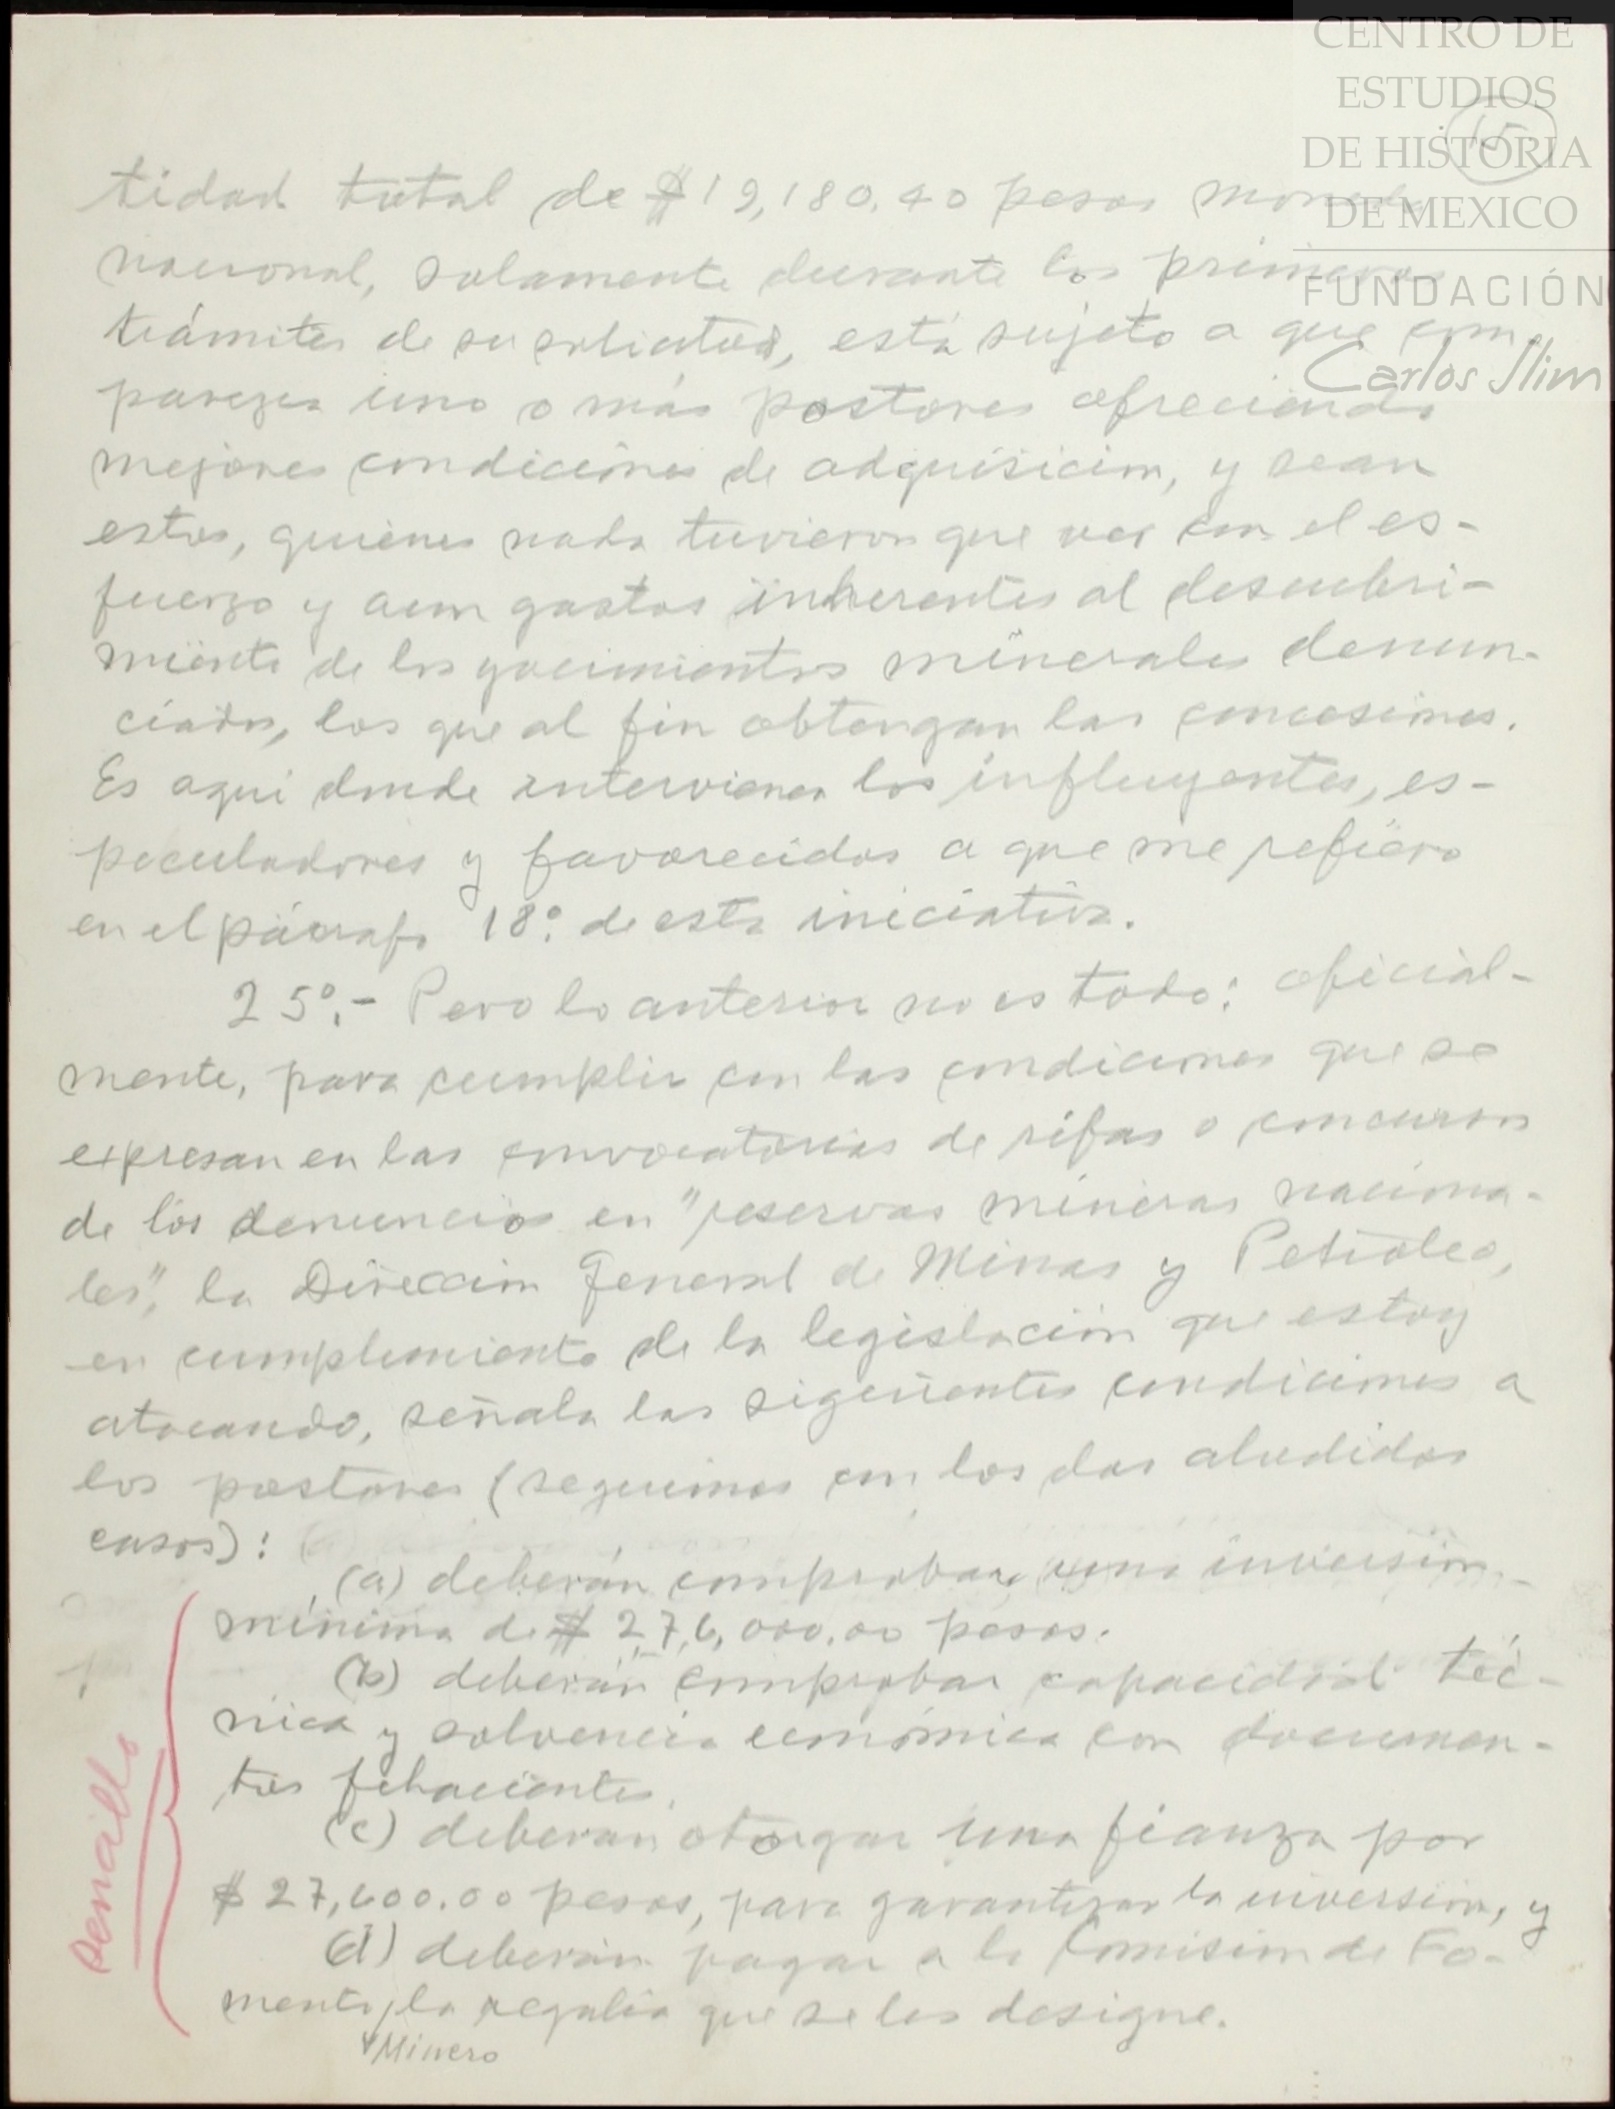 CENTRO DE
ESTUDIOS
DE HISTORIA
DE MEXICO
FUNDACIÓN
Carlos Slim
15
tidad total de $19,180.40 pesos moneda
nacional, solamente durante los primeros
trámites de su solicitud, está sujeto a que com
parezca uno o más postores ofreciendo
mejores condiciones de adquisicion, y sean
estos, quienes nada tuvieron que ver con el es-
fuerzo y aun gastos inherentes al descubri-
miento de los yacimientos minerales denun-
ciados, los que al fin obtengan las concesiones.
Es aqui donde intervienen los influyentes, es-
peculadores y favorecidos a que me refiero
en el párrafo 18º. de esta iniciativa.
25º.- Pero lo anterior no es todo: oficial-
mente, para cumplir con las condiciones que se
expresan en las convocatorias de rifas o concursos
de los denuncios en "reservas mineras naciona-
les", la Direccion General de Minas y Petroleo,
en cumplimiento de la legislación que estoy
atacando, señala las siguientes condiciones a
los postores (seguimos con los dos aludidos
casos):
(a) deberán comprobar una inversion
mínima de $ 276,000.00 pesos.
(b) deberán comprobar capacidad téc-
nica y solvencia económica con documen-
tos fehacientes.
(c) deberan otorgar una fianza por
$ 27,600.00 pesos, para garantizar la inversion, y
(d) deberán pagar a la Comision de Fo-
mento la regalia que se les designe.
Minero
sencillo